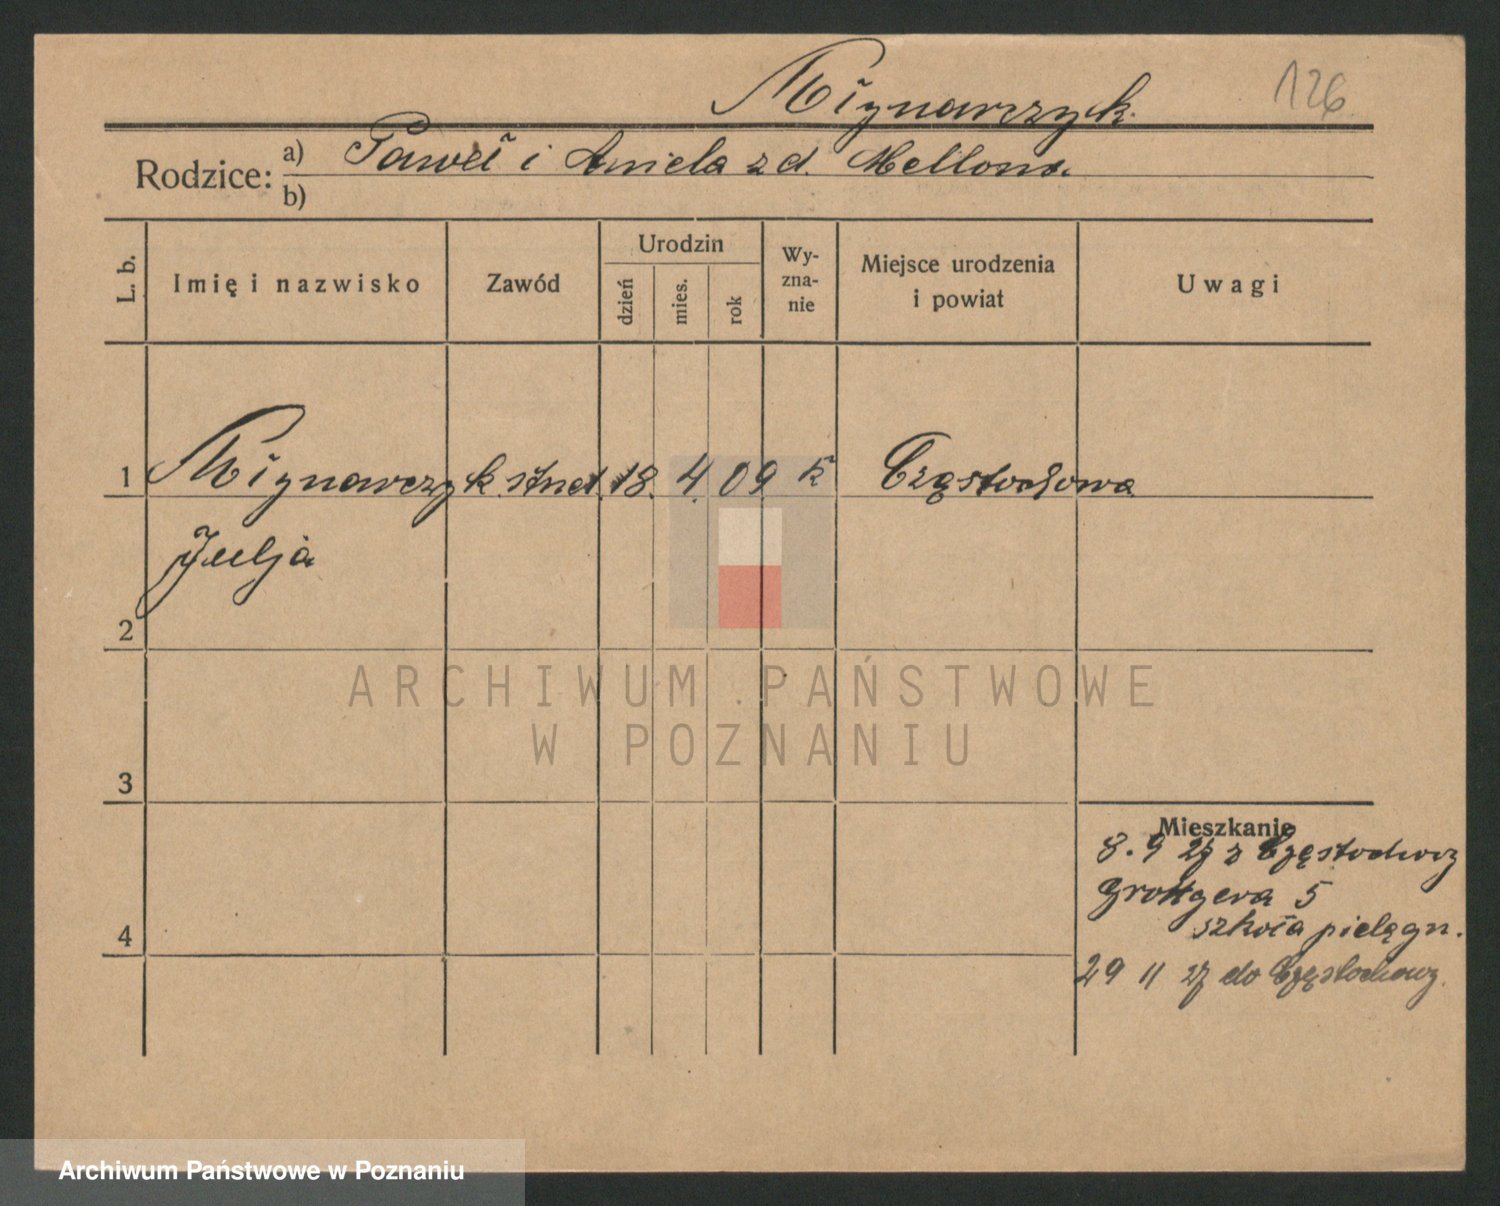 Młynarczyk
126
Rodzice: a) Paweł i Aniela z d. Mellona.
b)
L. b. Imię i nazwisko Zawód Urodzin dzień mies. rok Wy-zna-nie Miejsce urodzenia i powiat Uwagi
1 Młynarczyk stud. 18. 4. 09 k Częstochowa
Julja
2
ARCHIWUM PAŃSTWOWE
W POZNANIU
3
Mieszkanie
8. 9 27 z Częstochowy
Grottgera 5
szkoła pielęgn.
4
29 11 27 do Częstochowy.
Archiwum Państwowe w Poznaniu